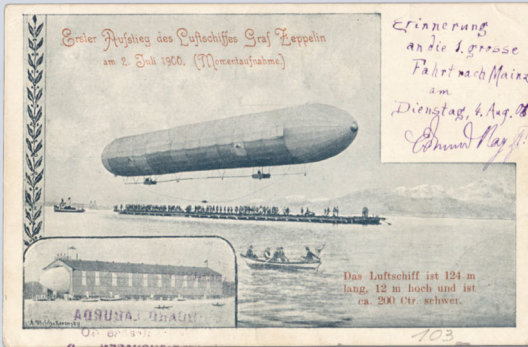 Erster Aufstieg des Luftschiffes Graf Zeppelin
am 2. Juli 1900. (Momentaufnahme.)
Erinnerung
an die 1. grosse
Fahrt nach Mainz
am
Dienstag, 4. Aug. 08
Das Luftschiff ist 124 m
lang, 12 m hoch und ist
ca. 200 Ctr. schwer.
103